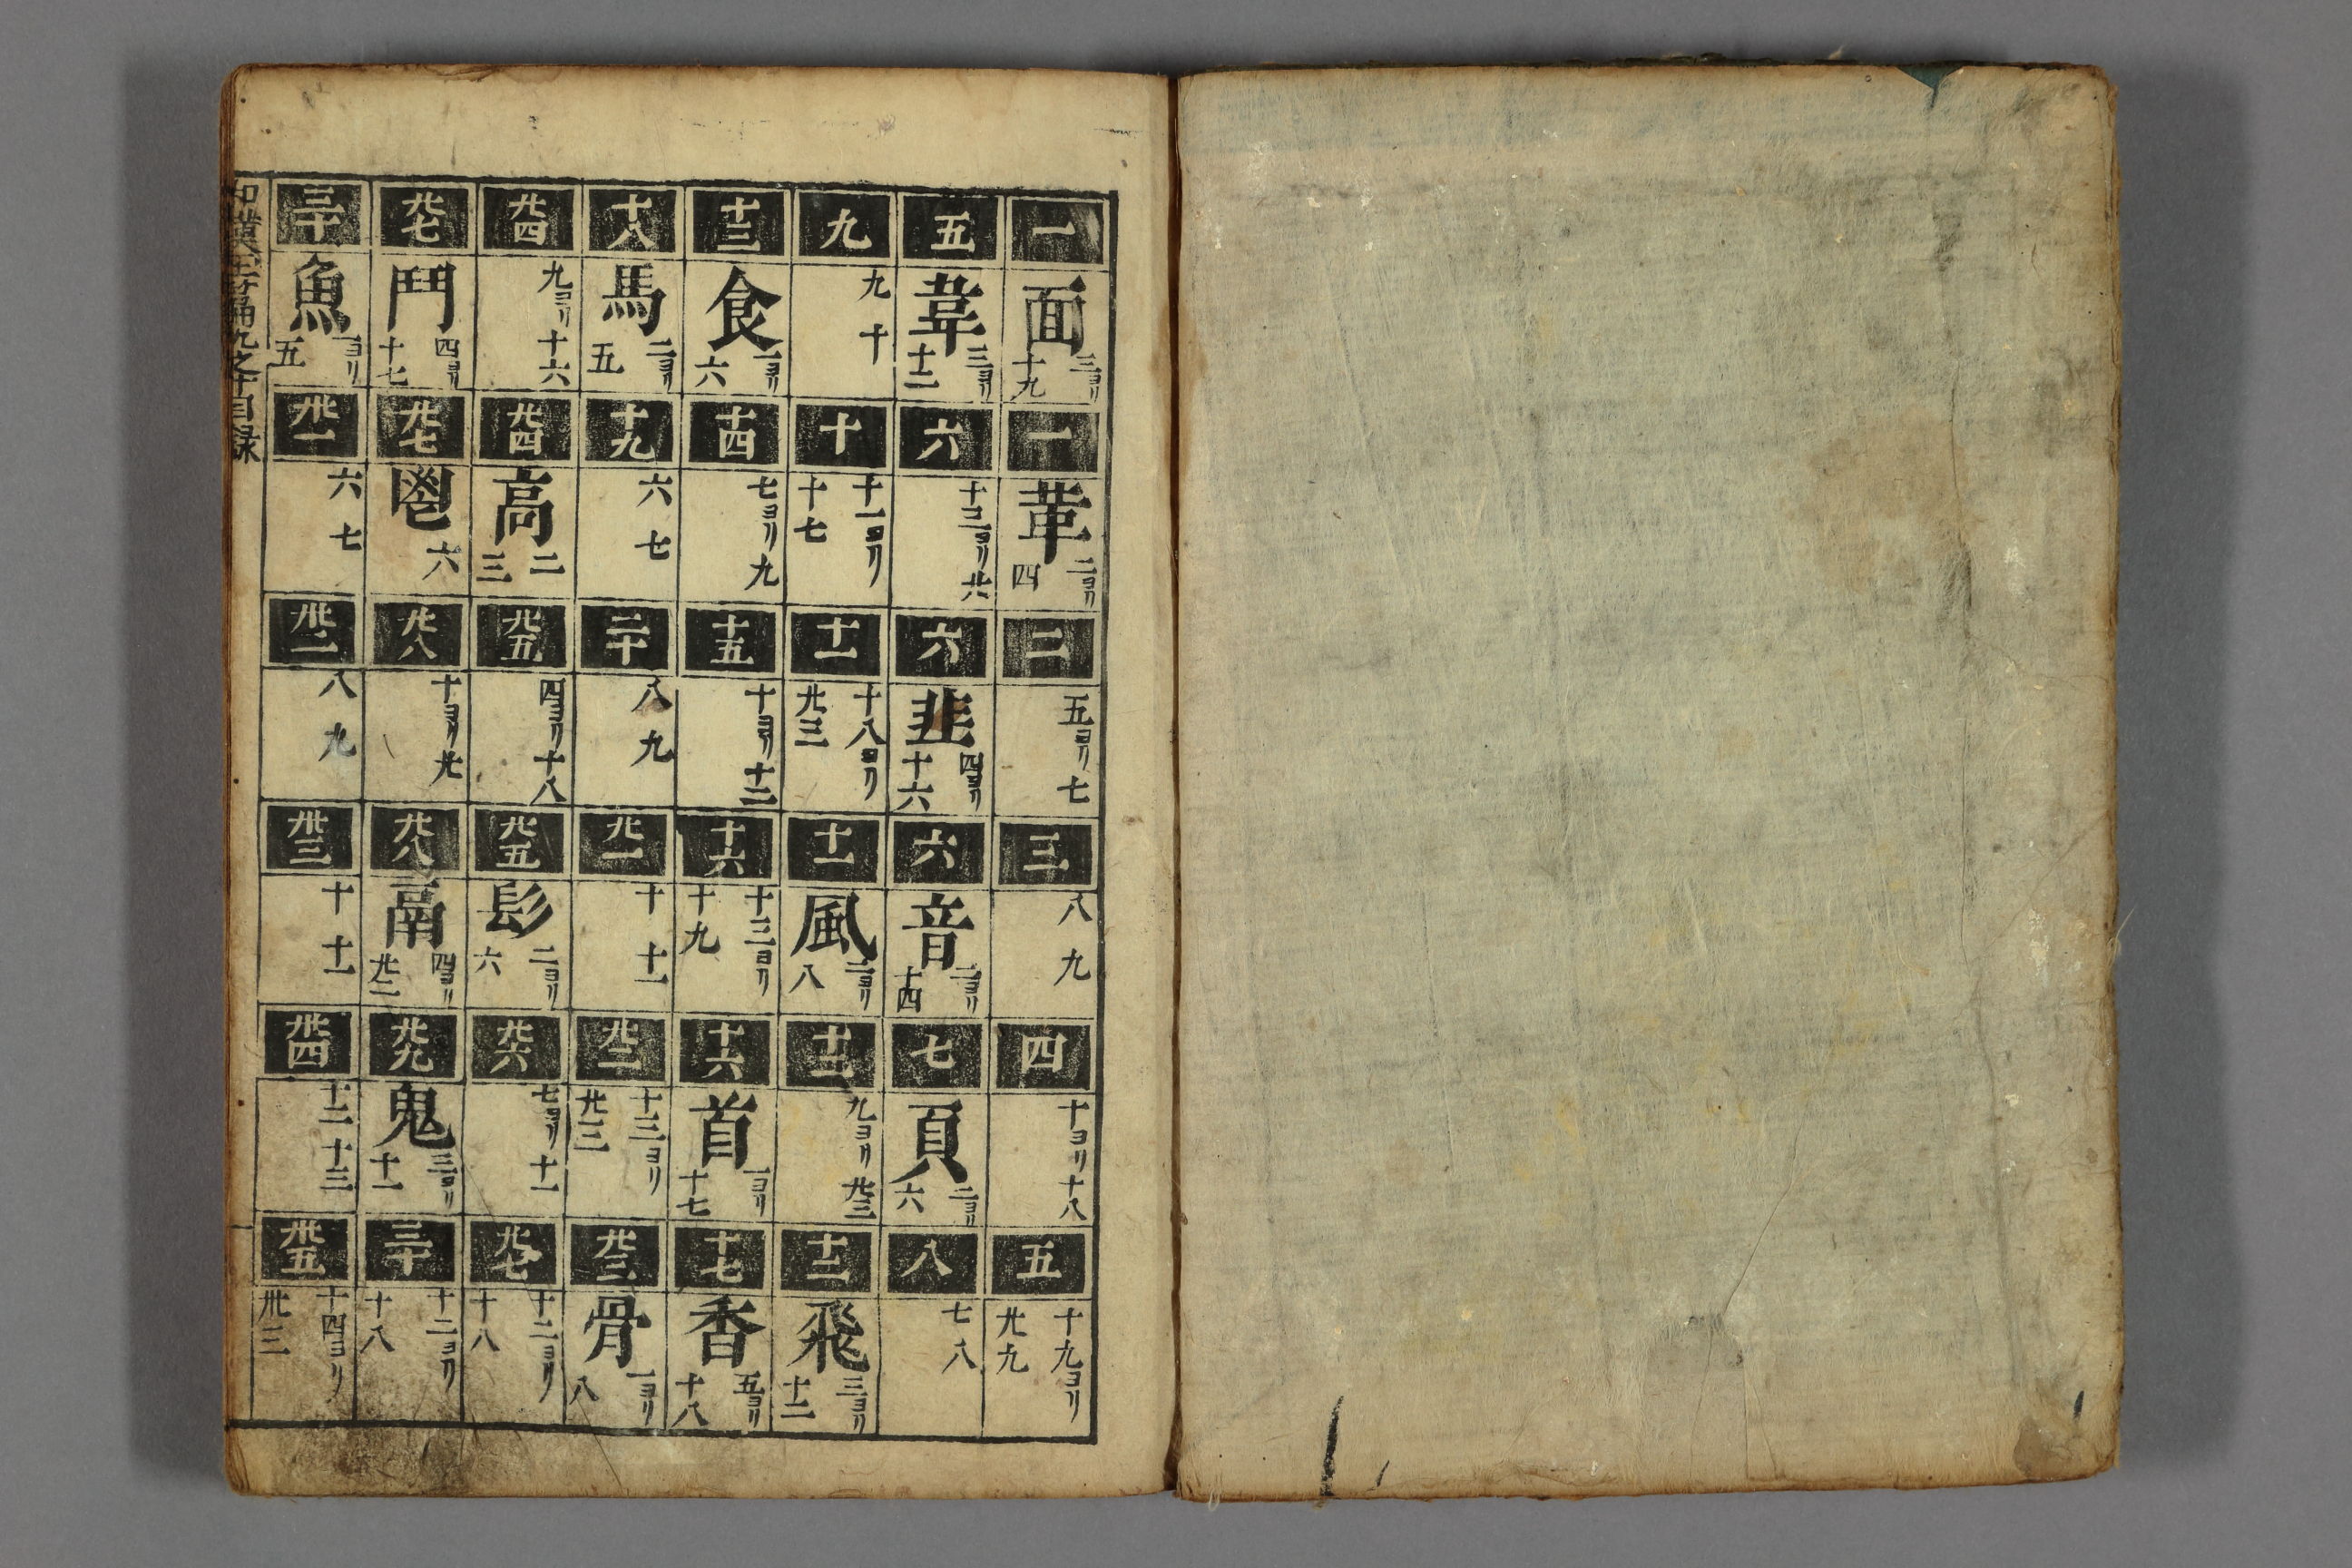 一
面
三ヨリ
十九
一
革
二ヨリ
四
二
五ヨリ七
三
八 九
四
十ヨリ十八
五
十九ヨリ
廿九
五
韋
三ヨリ
十二
六
十三ヨリ廿六
六
韭
四ヨリ
十六
六
音
二ヨリ
十四
七
頁
二ヨリ
六
八
七 八
九
九 十
十
十一ヨリ
十七
十一
十八ヨリ
廿三
十一
風
二ヨリ
八
十二
九ヨリ廿三
十二
飛
三ヨリ
十二
十三
食
一ヨリ
六
十四
七ヨリ九
十五
十ヨリ十二
十六
十三ヨリ
十九
十六
首
一ヨリ
十七
十七
香
五ヨリ
十八
十八
馬
二ヨリ
五
十九
六 七
二十
八 九
廿一
十 十一
廿二
十三ヨリ
廿三
廿三
骨
一ヨリ
八
廿四
九ヨリ十六
廿四
高
二
三
廿五
四ヨリ十八
廿五
髟
二ヨリ
六
廿六
七ヨリ十一
廿七
十二ヨリ
十八
廿七
鬥
四ヨリ
十七
廿七
鬯
六
廿八
十ヨリ廿
廿八
鬲
四ヨリ
廿二
廿九
鬼
三ヨリ
十一
三十
十二ヨリ
十八
三十
魚
一ヨリ
五
卅一
六 七
卅二
八 九
卅三
十 十一
卅四
十二 十三
卅五
十四ヨリ
卅三
玉篇九之十目録